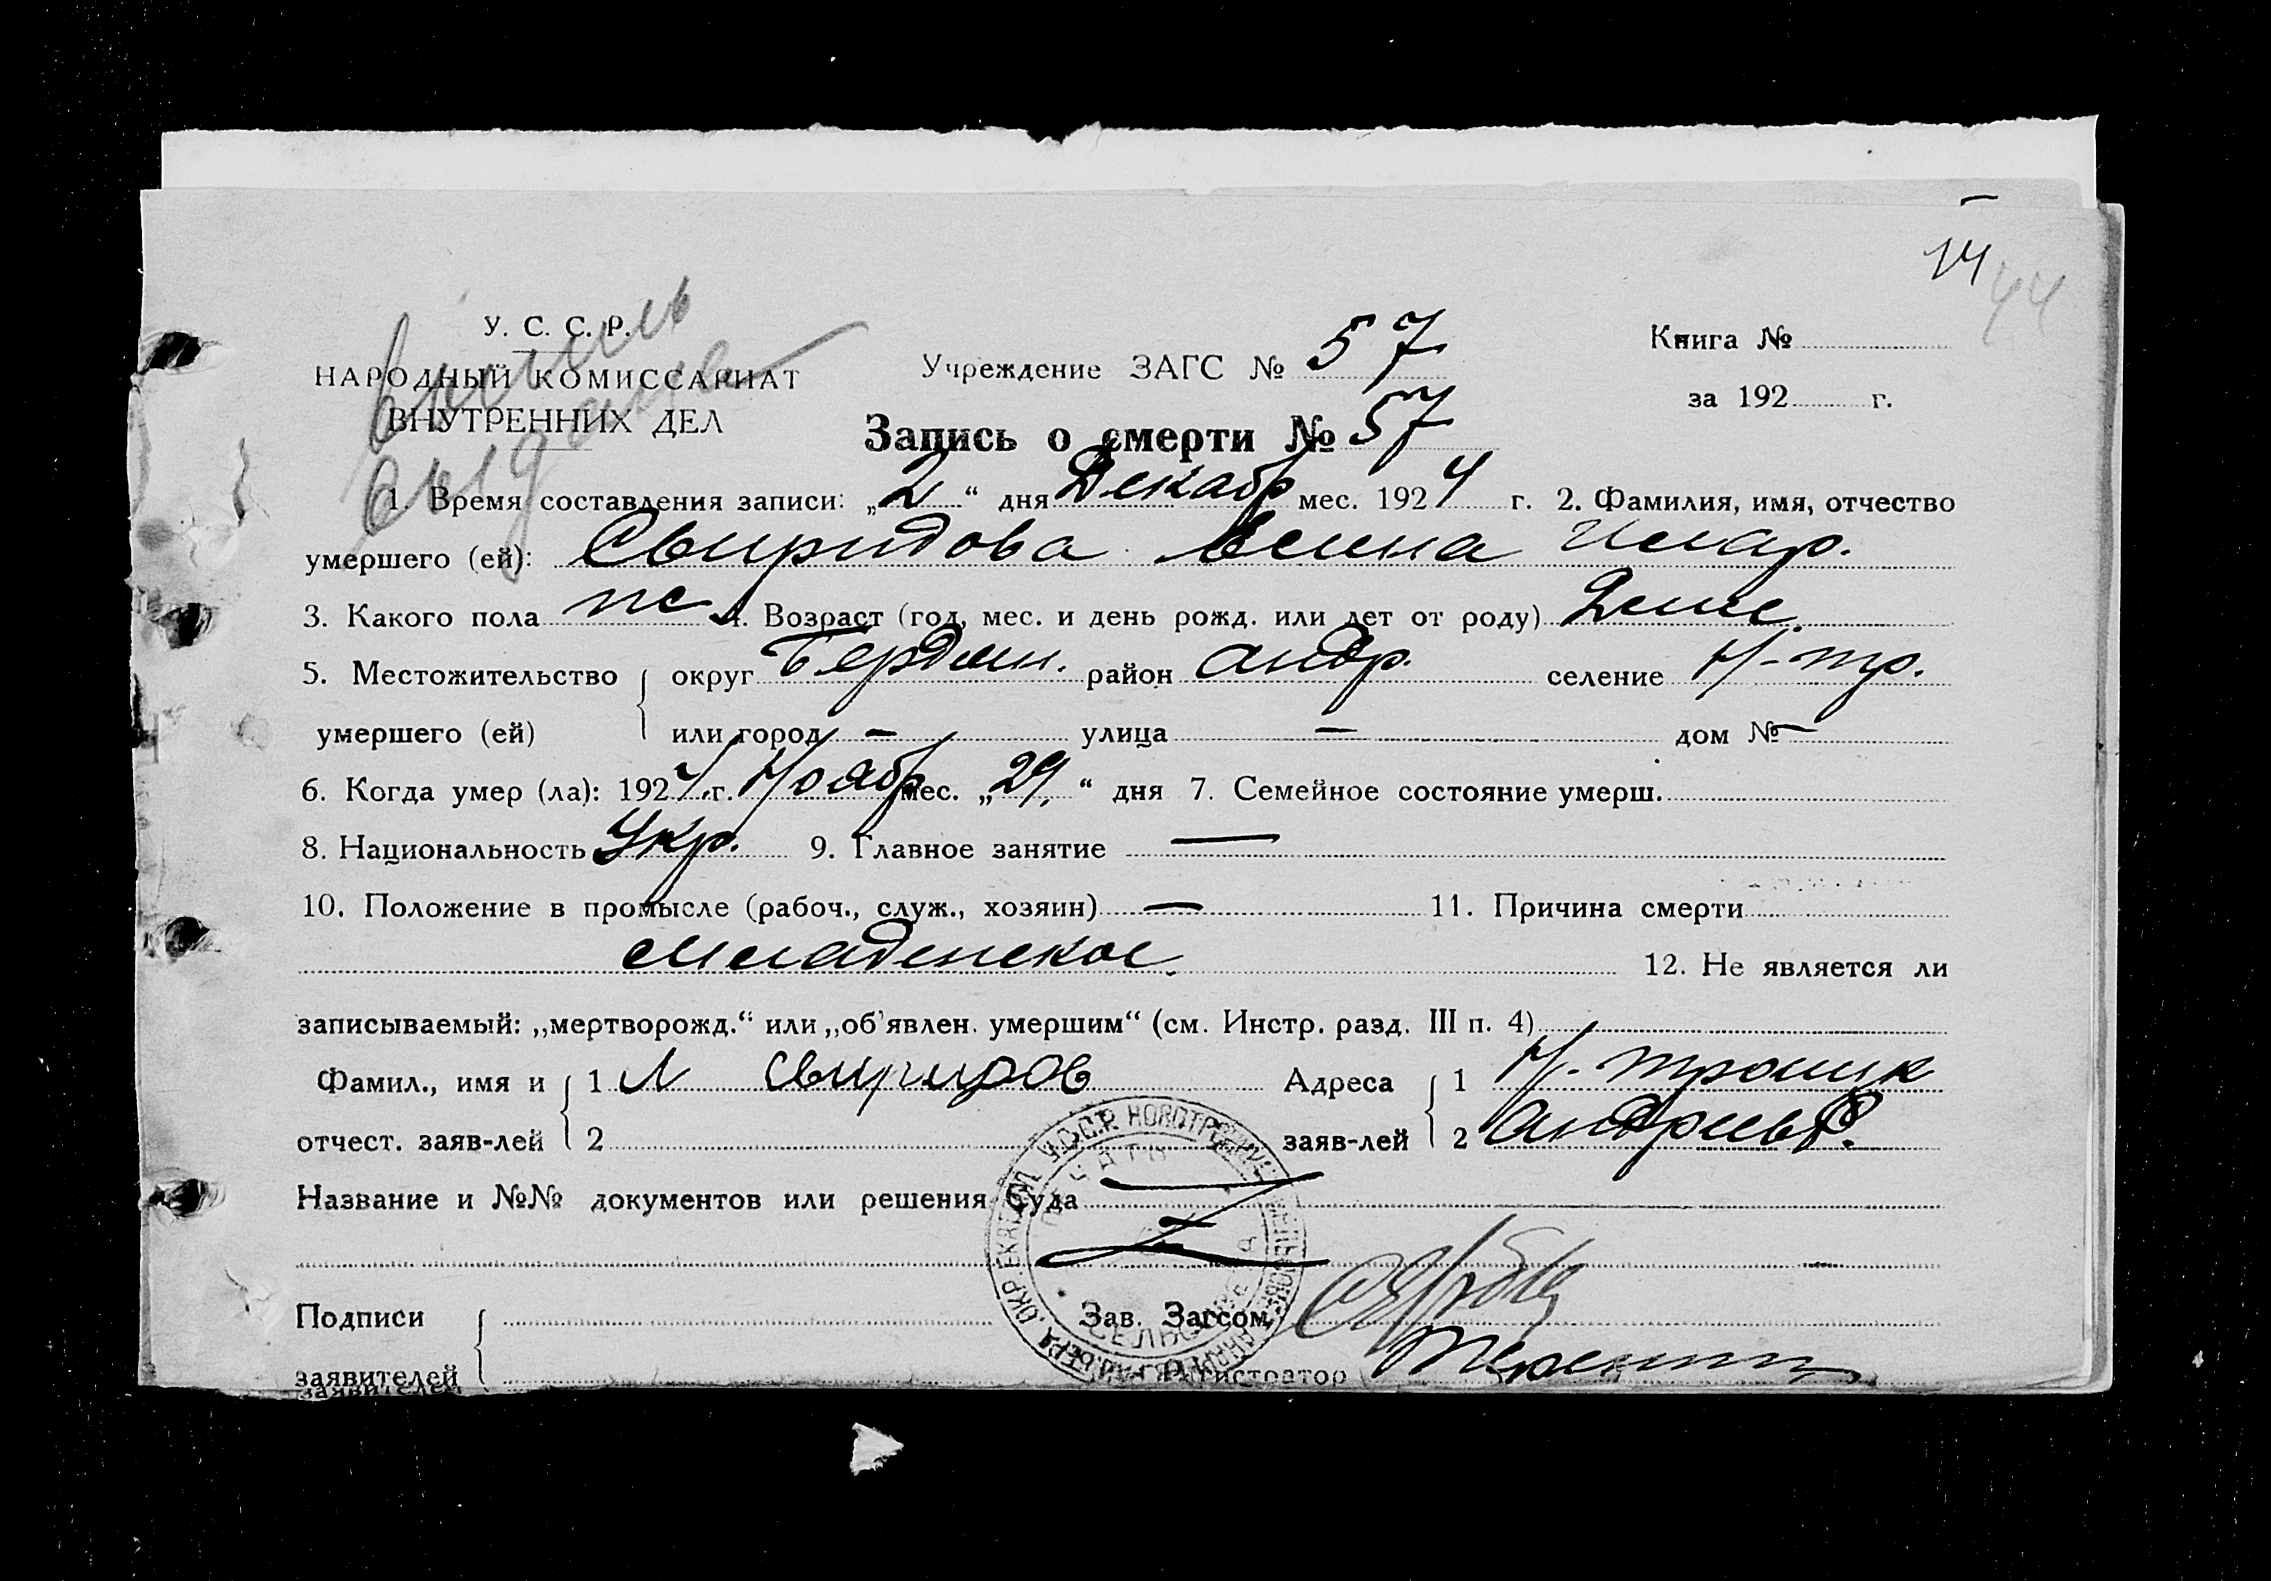 14 44
У. С. С. Р.
НАРОДНЫЙ КОМИССАРИАТ
ВНУТРЕННИХ ДЕЛ
Учреждение ЗАГС № 57
Книга №
за 192 г.
Запись о смерти № 57
1. Время составления записи: „2“ дня Декабр мес. 1924 г. 2. Фамилия, имя, отчество
умершего (ей): Свиридова
3. Какого пола 4. Возраст (год, мес. и день рожд. или лет от роду)
5. Местожительство округ Бердян. район андр. селение Н-тр.
умершего (ей) или город — улица — дом № —
6. Когда умер (ла): 1924 г. Ноябр мес. „29“ дня 7. Семейное состояние умерш.
8. Национальность Укр. 9. Главное занятие —
10. Положение в промысле (рабоч., служ., хозяин) — 11. Причина смерти
младенское. 12. Не является ли
записываемый: „мертворожд.“ или „об’явлен. умершим“ (см. Инстр. разд. III п. 4)
Фамил., имя и 1 Свиридов Адреса 1 Н-троицк
отчест. заяв-лей 2 заяв-лей 2 Андреевк Р.
Название и №№ документов или решения Суда
Подписи Зав. Загсом
заявителей Регистратор